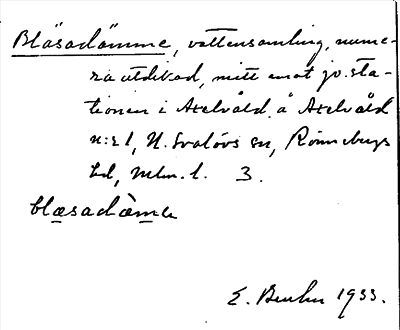 Blåsadämme, vattensamling, nume-
ra utdikad, mitt emot jv.sta-
tionen i Axelvåld å Axelvåld
n:r 1, N. Svalövs sn, Rönnebergs
hd, Mlm. l. 3.
blæsadæme
E. 1933.